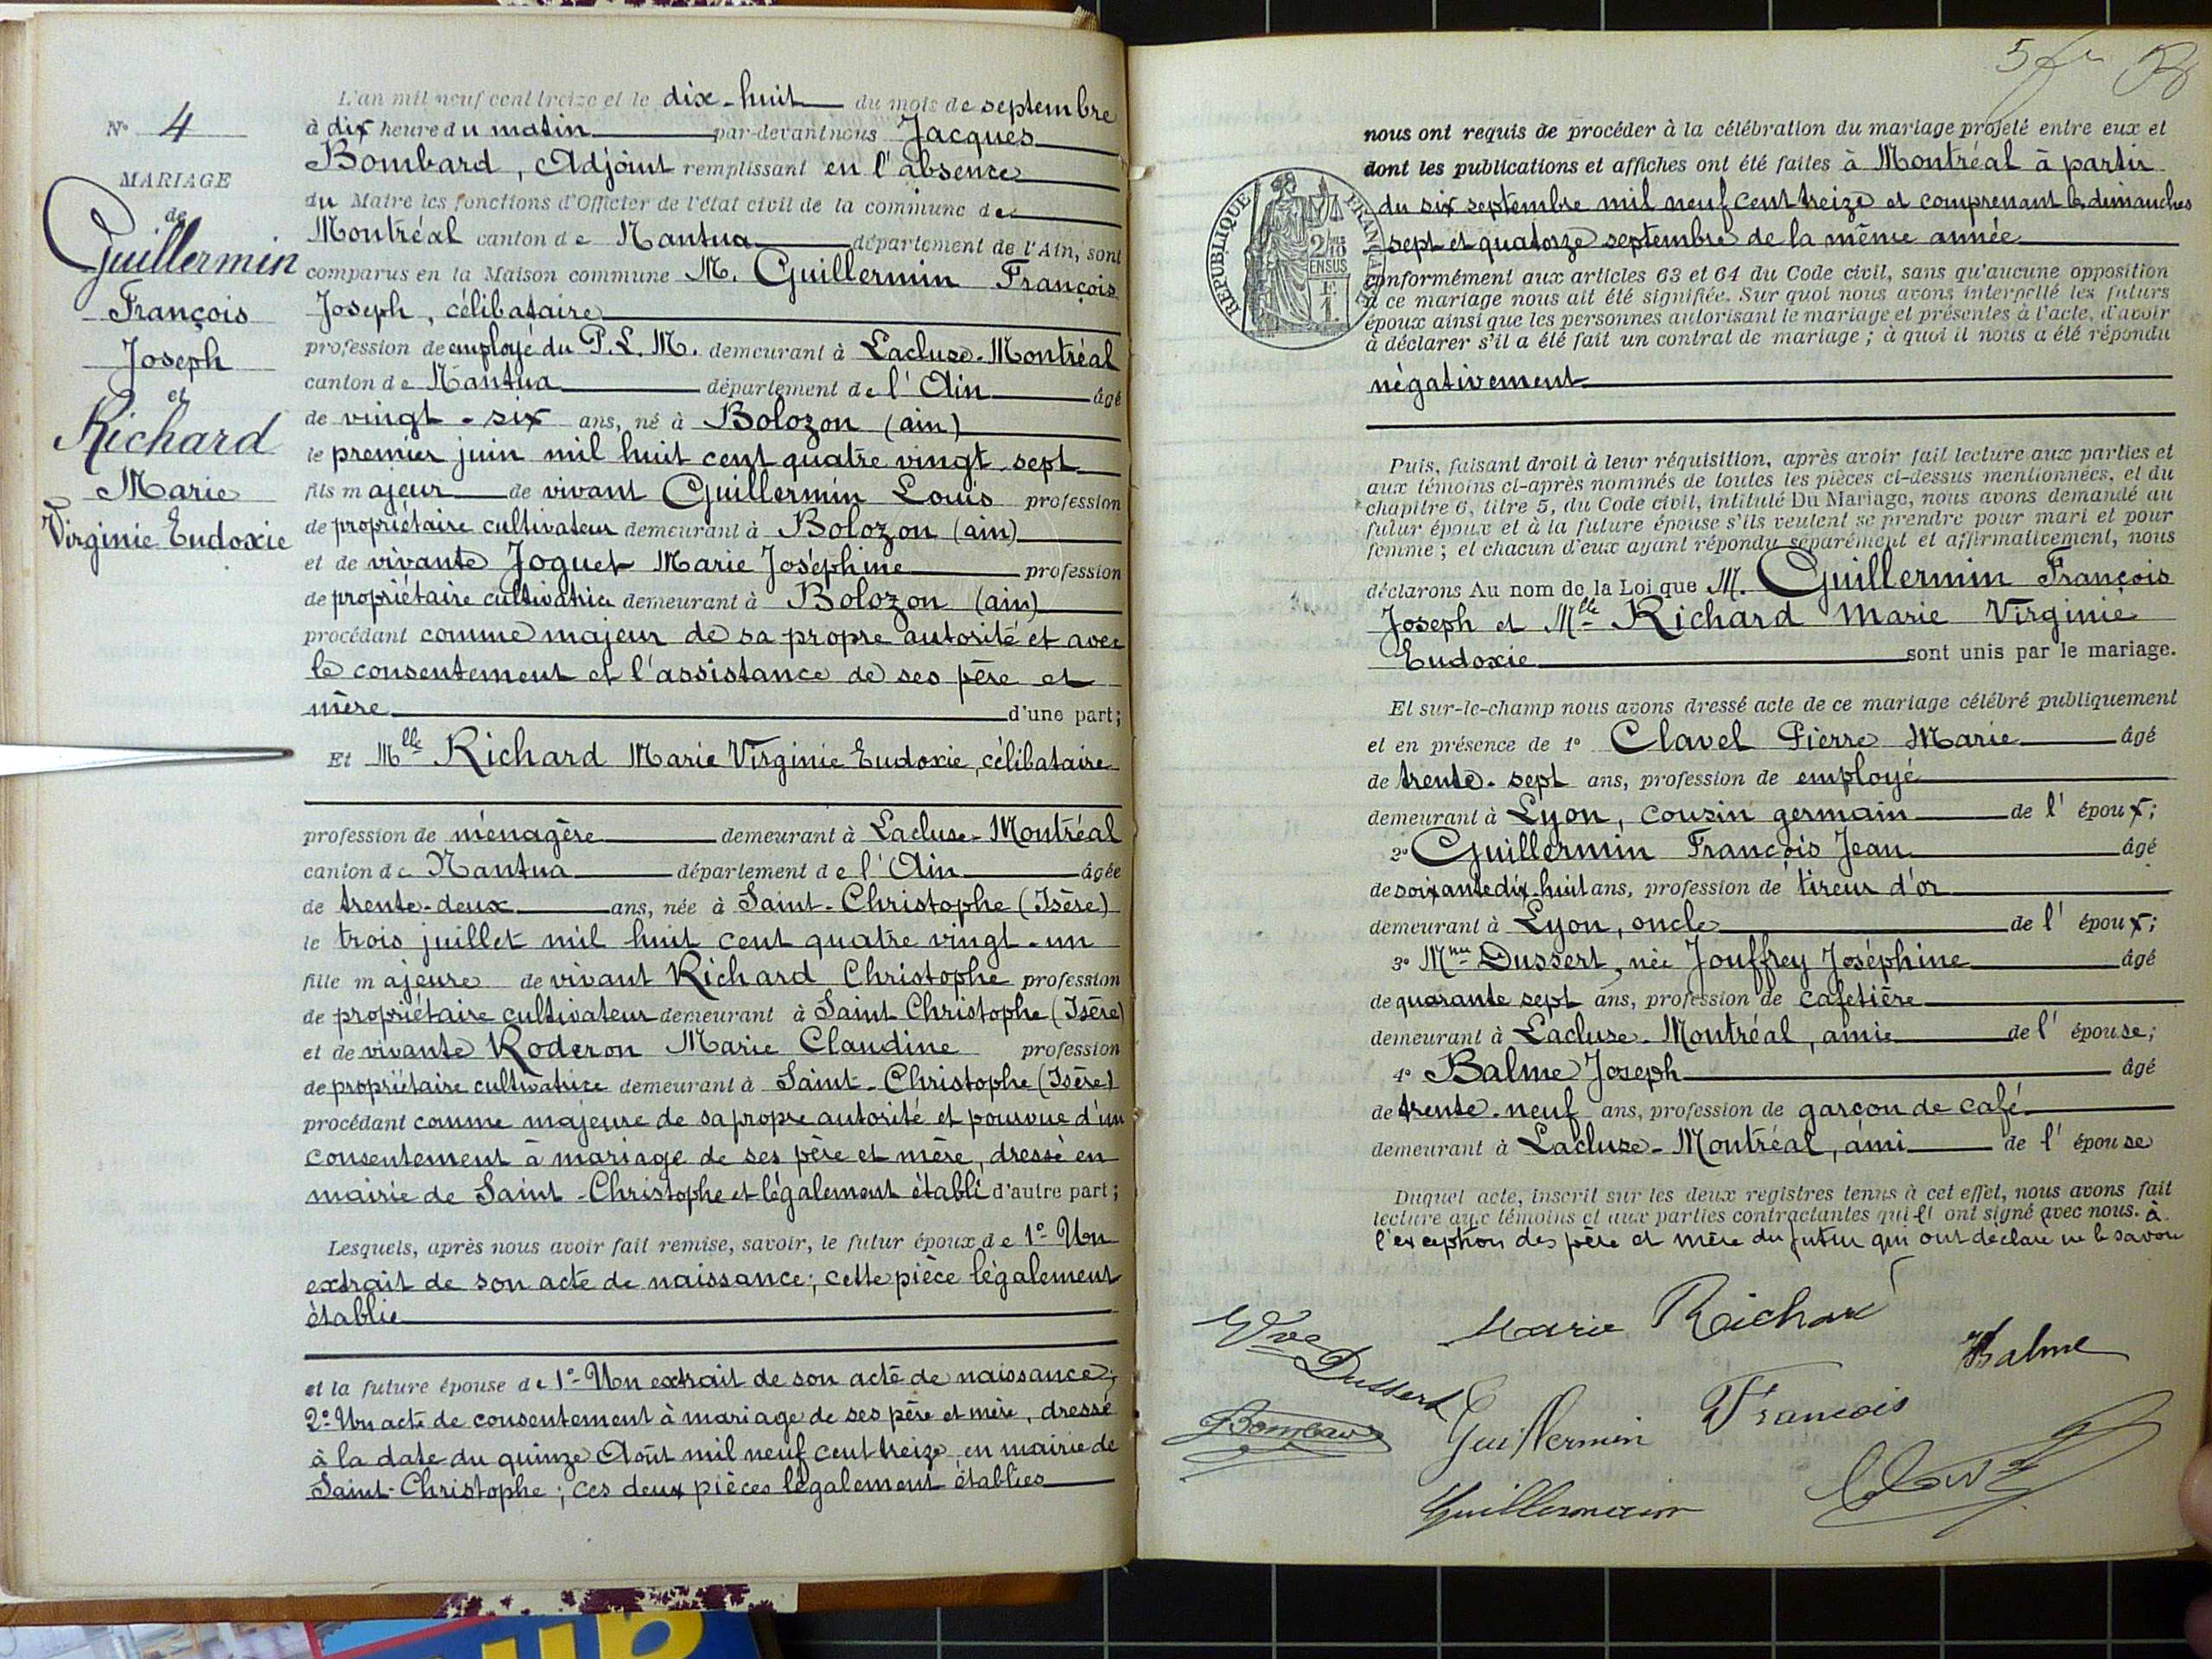 N° 4
MARIAGE
de
Guillermin
François
Joseph
et
Richard
Marie
Virginie Eudoxie
L'an mil neuf cent treize et le dix-huit du mois de septembre
à dix heure du matin par-devant nous Jacques
Bombard, Adjoint remplissant en l'absence
du Maire les fonctions d'Officier de l'état civil de la commune de
Montréal canton de Nantua département de l'Ain, sont
comparus en la Maison commune M. Guillermin François
Joseph, célibataire
profession de employé du P.L.M. demeurant à Lacluse-Montréal
canton de Nantua département de l'Ain âgé
de vingt-six ans, né à Bolozon (ain)
le premier juin mil huit cent quatre vingt-sept
fils majeur de vivant Guillermin Louis profession
de propriétaire cultivateur demeurant à Bolozon (ain)
et de vivante Joguet Marie Joséphine profession
de propriétaire cultivatrice demeurant à Bolozon (ain)
procédant comme majeur de sa propre autorité et avec
le consentement et l'assistance de ses père et
mère d'une part;
Et Mlle Richard Marie Virginie Eudoxie, célibataire
profession de ménagère demeurant à Lacluse-Montréal
canton de Nantua département de l'Ain âgée
de trente-deux ans, née à Saint-Christophe (Isère)
le trois juillet mil huit cent quatre vingt-un
fille majeure de vivant Richard Christophe profession
de propriétaire cultivateur demeurant à Saint Christophe (Isère)
et de vivante Roderon Marie Claudine profession
de propriétaire cultivatrice demeurant à Saint-Christophe (Isère)
procédant comme majeure de sa propre autorité et pourvue d'un
consentement à mariage de ses père et mère, dressé en
mairie de Saint-Christophe et légalement établi d'autre part;
Lesquels, après nous avoir fait remise, savoir, le futur époux de 1° Un
extrait de son acte de naissance; cette pièce légalement
établie
et la future épouse de 1° Un extrait de son acte de naissance;
2° Un acte de consentement à mariage de ses père et mère, dressé
à la date du quinze Août mil neuf cent treize, en mairie de
Saint-Christophe; ces deux pièces légalement établies
5
nous ont requis de procéder à la célébration du mariage projeté entre eux et
dont les publications et affiches ont été faites à Montréal à partir
du six septembre mil neuf cent treize et comprenant les dimanches
sept et quatorze septembre de la même année
RÉPUBLIQUE FRANÇAISE
2/10 EN SUS
F.1.
conformément aux articles 63 et 64 du Code civil, sans qu'aucune opposition
à ce mariage nous ait été signifiée. Sur quoi nous avons interpellé les futurs
époux ainsi que les personnes autorisant le mariage et présentes à l'acte, d'avoir
à déclarer s'il a été fait un contrat de mariage; à quoi il nous a été répondu
négativement
Puis, faisant droit à leur réquisition, après avoir fait lecture aux parties et
aux témoins ci-après nommés de toutes les pièces ci-dessus mentionnées, et du
chapitre 6, titre 5, du Code civil, intitulé Du Mariage, nous avons demandé au
futur époux et à la future épouse s'ils veulent se prendre pour mari et pour
femme; et chacun d'eux ayant répondu séparément et affirmativement, nous
déclarons Au nom de la Loi que M. Guillermin François
Joseph et Mlle Richard Marie Virginie
Eudoxie sont unis par le mariage.
Et sur-le-champ nous avons dressé acte de ce mariage célébré publiquement
et en présence de 1° Clavel Pierre Marie âgé
de trente-sept ans, profession de employé
demeurant à Lyon, cousin germain de l'époux;
2° Guillermin François Jean âgé
de soixante dix-huit ans, profession de tireur d'or
demeurant à Lyon, oncle de l'époux;
3° Mme Dussert, née Jouffrey Joséphine âgé
de quarante sept ans, profession de cafetière
demeurant à Lacluse-Montréal, amie de l'épouse;
4° Balme Joseph âgé
de trente-neuf ans, profession de garçon de café
demeurant à Lacluse-Montréal, ami de l'épouse
Duquel acte, inscrit sur les deux registres tenus à cet effet, nous avons fait
lecture aux témoins et aux parties contractantes qui l'ont signé avec nous. à
l'exception des père et mère du futur qui ont déclaré ne le savoir
Vve Dussert
Marie Richard
Balme
Bombard
Guillermin François
Guillermin
Clavel